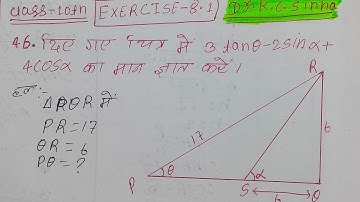 class-10th EXERCISE-8.1 Dr. K.C. Sinha
46. दिए गए चित्र में 3 tanθ-2sinα+
4cosα का मान ज्ञात करें।
हल:- ΔPQR में
PR=17
QR=6
PQ=?
R
17
6
P
θ
S
α
Q
6